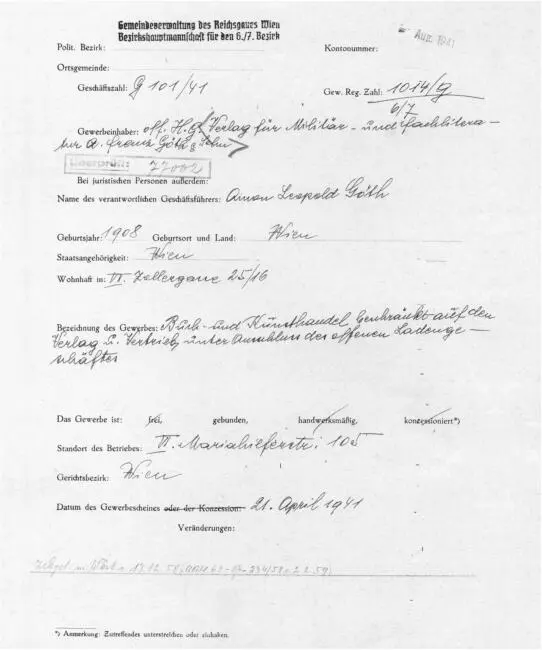 Gemeindeverwaltung des Reichsgaues Wien
Bezirkshauptmannschaft für den 6./7. Bezirk
Aug. 1941
Polit. Bezirk:
Kontonummer:
Ortsgemeinde:
Geschäftszahl: G 101/41
Gew. Reg. Zahl: 1014/g
6/7
Gewerbeinhaber: off. H. G. Verlag für Militär- und Fachlitera-
tur A. Franz Göth & Sohn
Überprüft: 77002
Bei juristischen Personen außerdem:
Name des verantwortlichen Geschäftsführers: Amon Leopold Göth
Geburtsjahr: 1908 Geburtsort und Land: Wien
Staatsangehörigkeit: Wien
Wohnhaft in: VI. Zollergasse 25/16
Bezeichnung des Gewerbes: Buch- und Kunsthandel beschränkt auf den
Verlag u. Vertrieb, unter Ausschluss des offenen Ladenge-
schäftes
Das Gewerbe ist: frei, gebunden, handwerksmäßig, konzessioniert*)
Standort des Betriebes: VI. Mariahilferstr. 105
Gerichtsbezirk: Wien
Datum des Gewerbescheines oder der Konzession: 21. April 1941
Veränderungen:
*) Anmerkung: Zutreffendes unterstreichen oder einhaken.